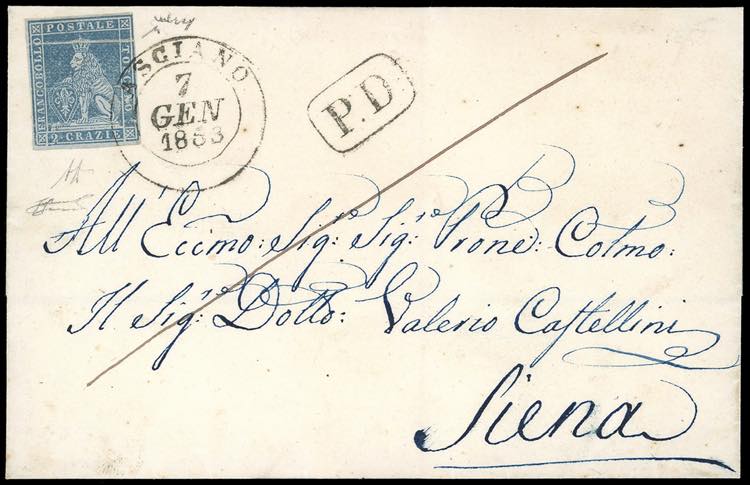 FRANCOBOLLO
POSTALE
TOSCANO
2·CRAZIE
ASCIANO
7
GEN
1853
P.D
All' Eccmo: Sigre Sigre Prone: Colmo:
Il Sigre Dotto: Valerio Castellini
Siena